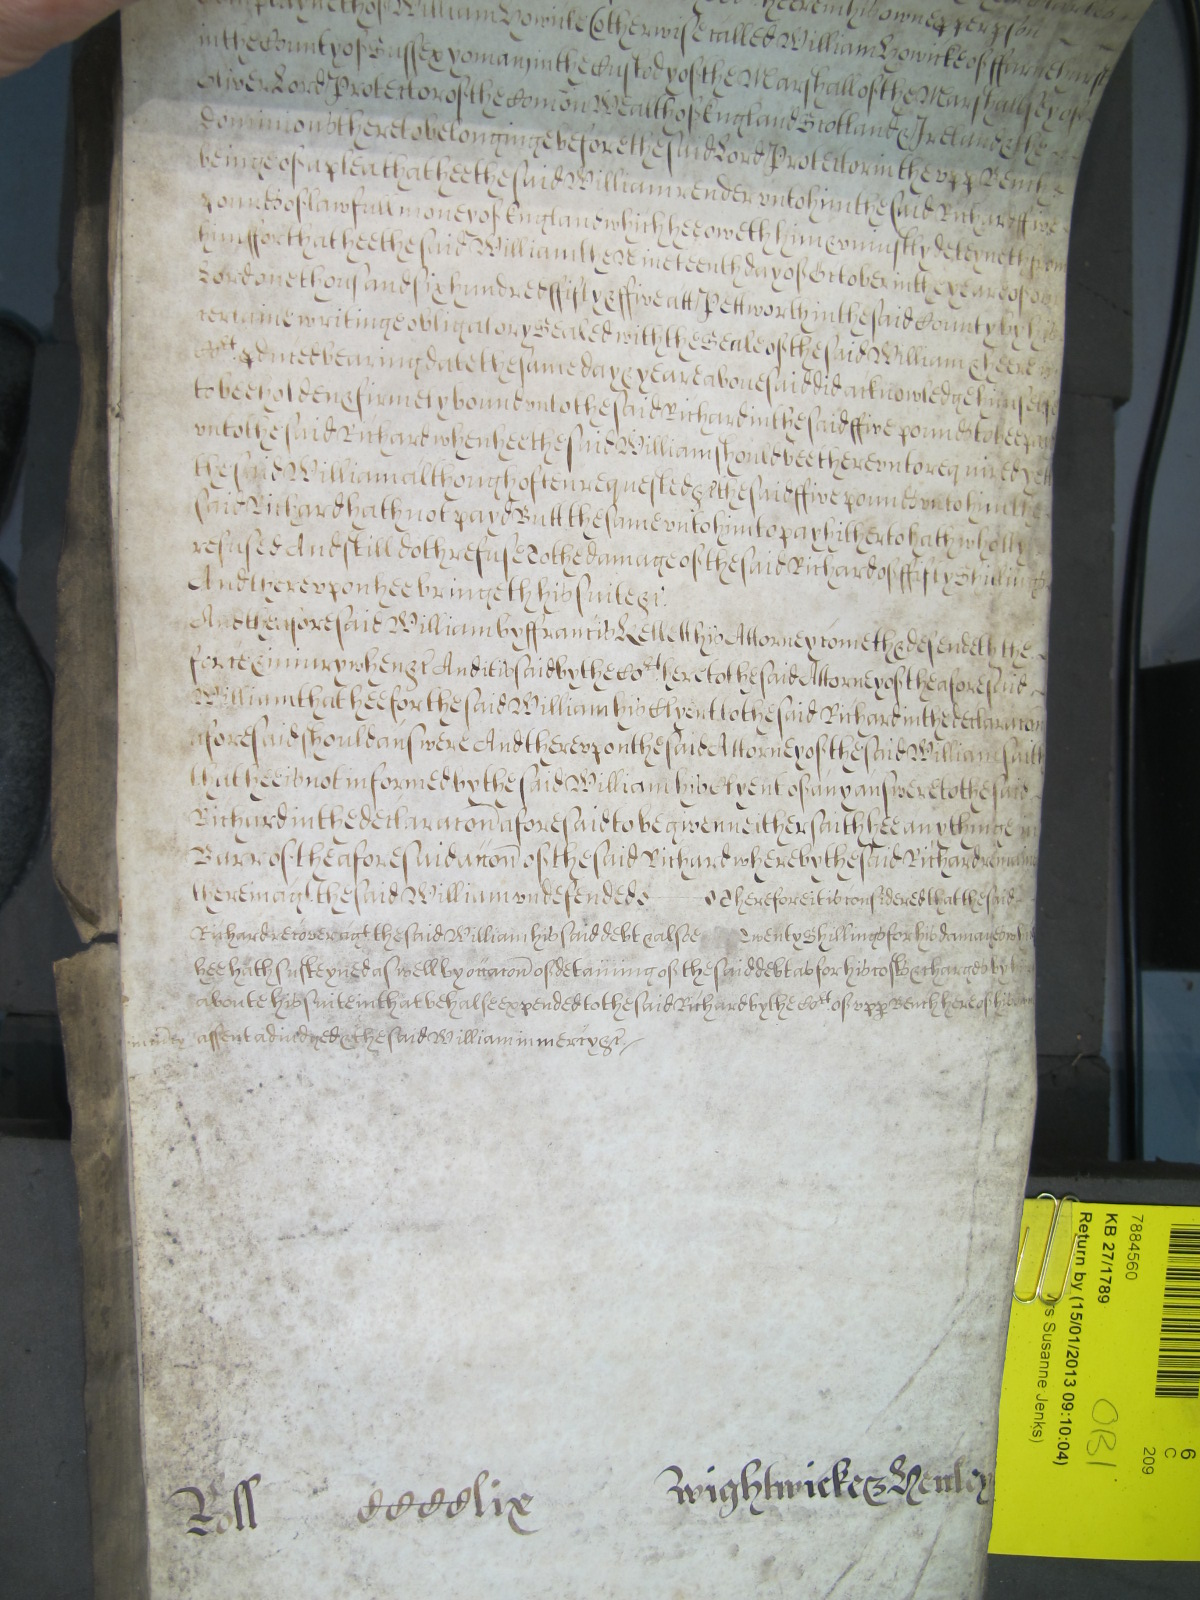 Complayneth of William Howicke (otherwise called William Howicke of ffarnehurst
in the County of Sussex yoman) in the Custody of the Marshall of the Marshallsey of
Oliver Lord Protector of the Comon Wealth of England Scotland & Ireland & the
dominions thereto belonginge before the said Lord Protector in the vpp Bench
beinge of a plea that hee the said William render vnto him the said Richard ffive
pounds of lawfull money of England which hee oweth him & vniustly deteyneth from
him ffor that hee the said William the Nineteenth day of October in the yeare of our
Lord one thousand six hundred ffifty & ffive att Pettworth in the said County by his
certaine writinge obligatory Sealed with the Seale of the said William & heere in
Cort pduced bearing date the same day & yeare abouesaid did acknowledge himselfe
to bee holden & firmely bound vnto the said Richard in the said ffive pounds to bee paid
vnto the said Richard when hee the said William should bee therevnto required yett
the said William although often requested &c the said ffive pounds vnto him the
said Richard hath not payd Butt the same vnto him to pay hitherto hath wholly
refused And still doth refuse To the damage of the said Richard of ffifty Shillings
And therevpon hee bringeth his suite &c.
And the aforesaid William by ffrancis Kellett his Attorney cometh & defendeth the
force & iniury when &c And it is said by the Cort here to the said Attorney of the aforesaid
William that hee for the said William his Clyent to the said Richard in the declaracon
aforesaid should answere And therevpon the said Attorney of the said William saith
that hee is not informed by the said William his Clyent of any answere to the said
Richard in the declaracon aforesaid to be given neither saith hee any thinge in
Barr of the aforesaid accon of the said Richard whereby the said Richard remaines
therein agt. the said William vndefended Therefore it is considered that the said
Richard recover agt the said William his said debt & alsoe Twenty Shillings for his damages which
hee hath susteyned as well by occacon of detaining of the said debt as for his costs & charges by him
aboute his suite in that behalfe expended to the said Richard by the Cort. of vpp Bench here of his
assent adiudged & the said William in mercy &c
Roll CCCClix Wightwicke & Henley
7884560
KB 27/1789
Return by (15/01/2013 09:10:04)
Susanne Jenks)
OBI
6
C
209